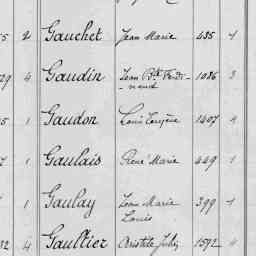 2 Gauchet Jean Marie 435 1
4 Gaudin Jean Bte Ferdi-
-nand 1036 3
1 Gaudon Louis Eugène 1407 4
1 Gaulais René Marie 449 1
1 Gaulay Jean Marie 399 1
Louis
32 4 Gaultier Aristide Jules 1592 4